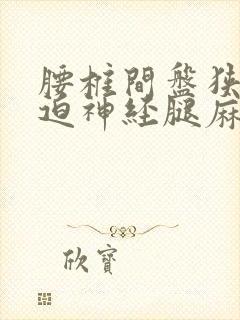 腰柱間盤狭
迫神経腿麻
欣寶